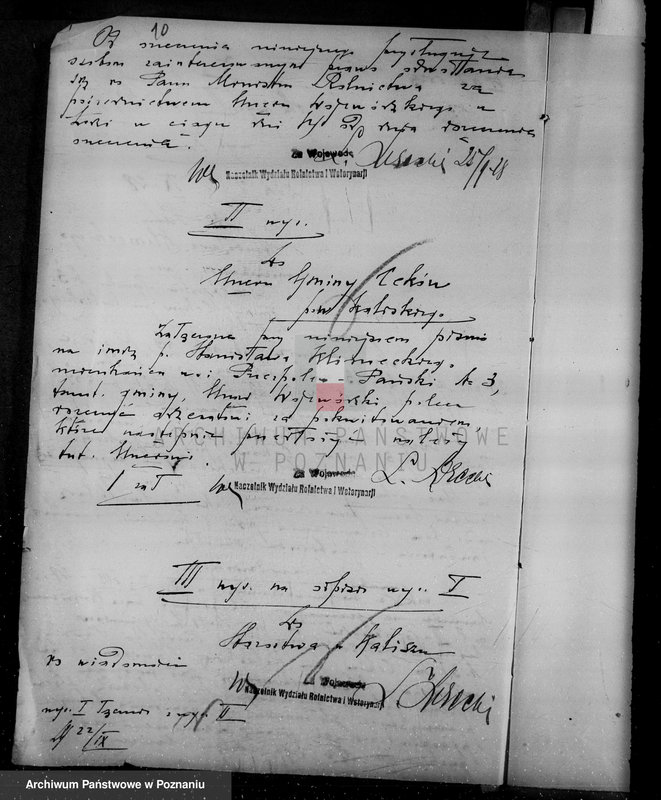 10
Od orzeczenia niniejszego przysługuje
osobom zainteresowanym prawo odwołania
się do Pana Ministra Rolnictwa za
pośrednictwem Urzędu Wojewódzkiego w
Łodzi w ciągu dni od dnia doręczenia
orzeczenia.
Za Wojewodę
Naczelnik Wydziału Rolnictwa i Weterynarji
II wyg.
Do
Urzędu Gminy Ceków
pow. Kaliskiego.
Załączone przy niniejszem pismo
na imię p. Stanisława
mieszkańca wsi Pański № 3,
tamt. gminy, Urząd Wojewódzki poleca
doręczyć adresatowi za pokwitowaniem,
które następnie przesłać należy
tut. Urzędowi.
Za Wojewodę
Naczelnik Wydziału Rolnictwa i Weterynarji
III wyg. na odpisie wyg. I
Do
Starostwa w Kaliszu
do wiadomości
Za Wojewodę
Naczelnik Wydziału Rolnictwa i Weterynarji
wyg. I z wyg. II
22/IX
ARCHIWUM PAŃSTWOWE
W POZNANIU
Archiwum Państwowe w Poznaniu